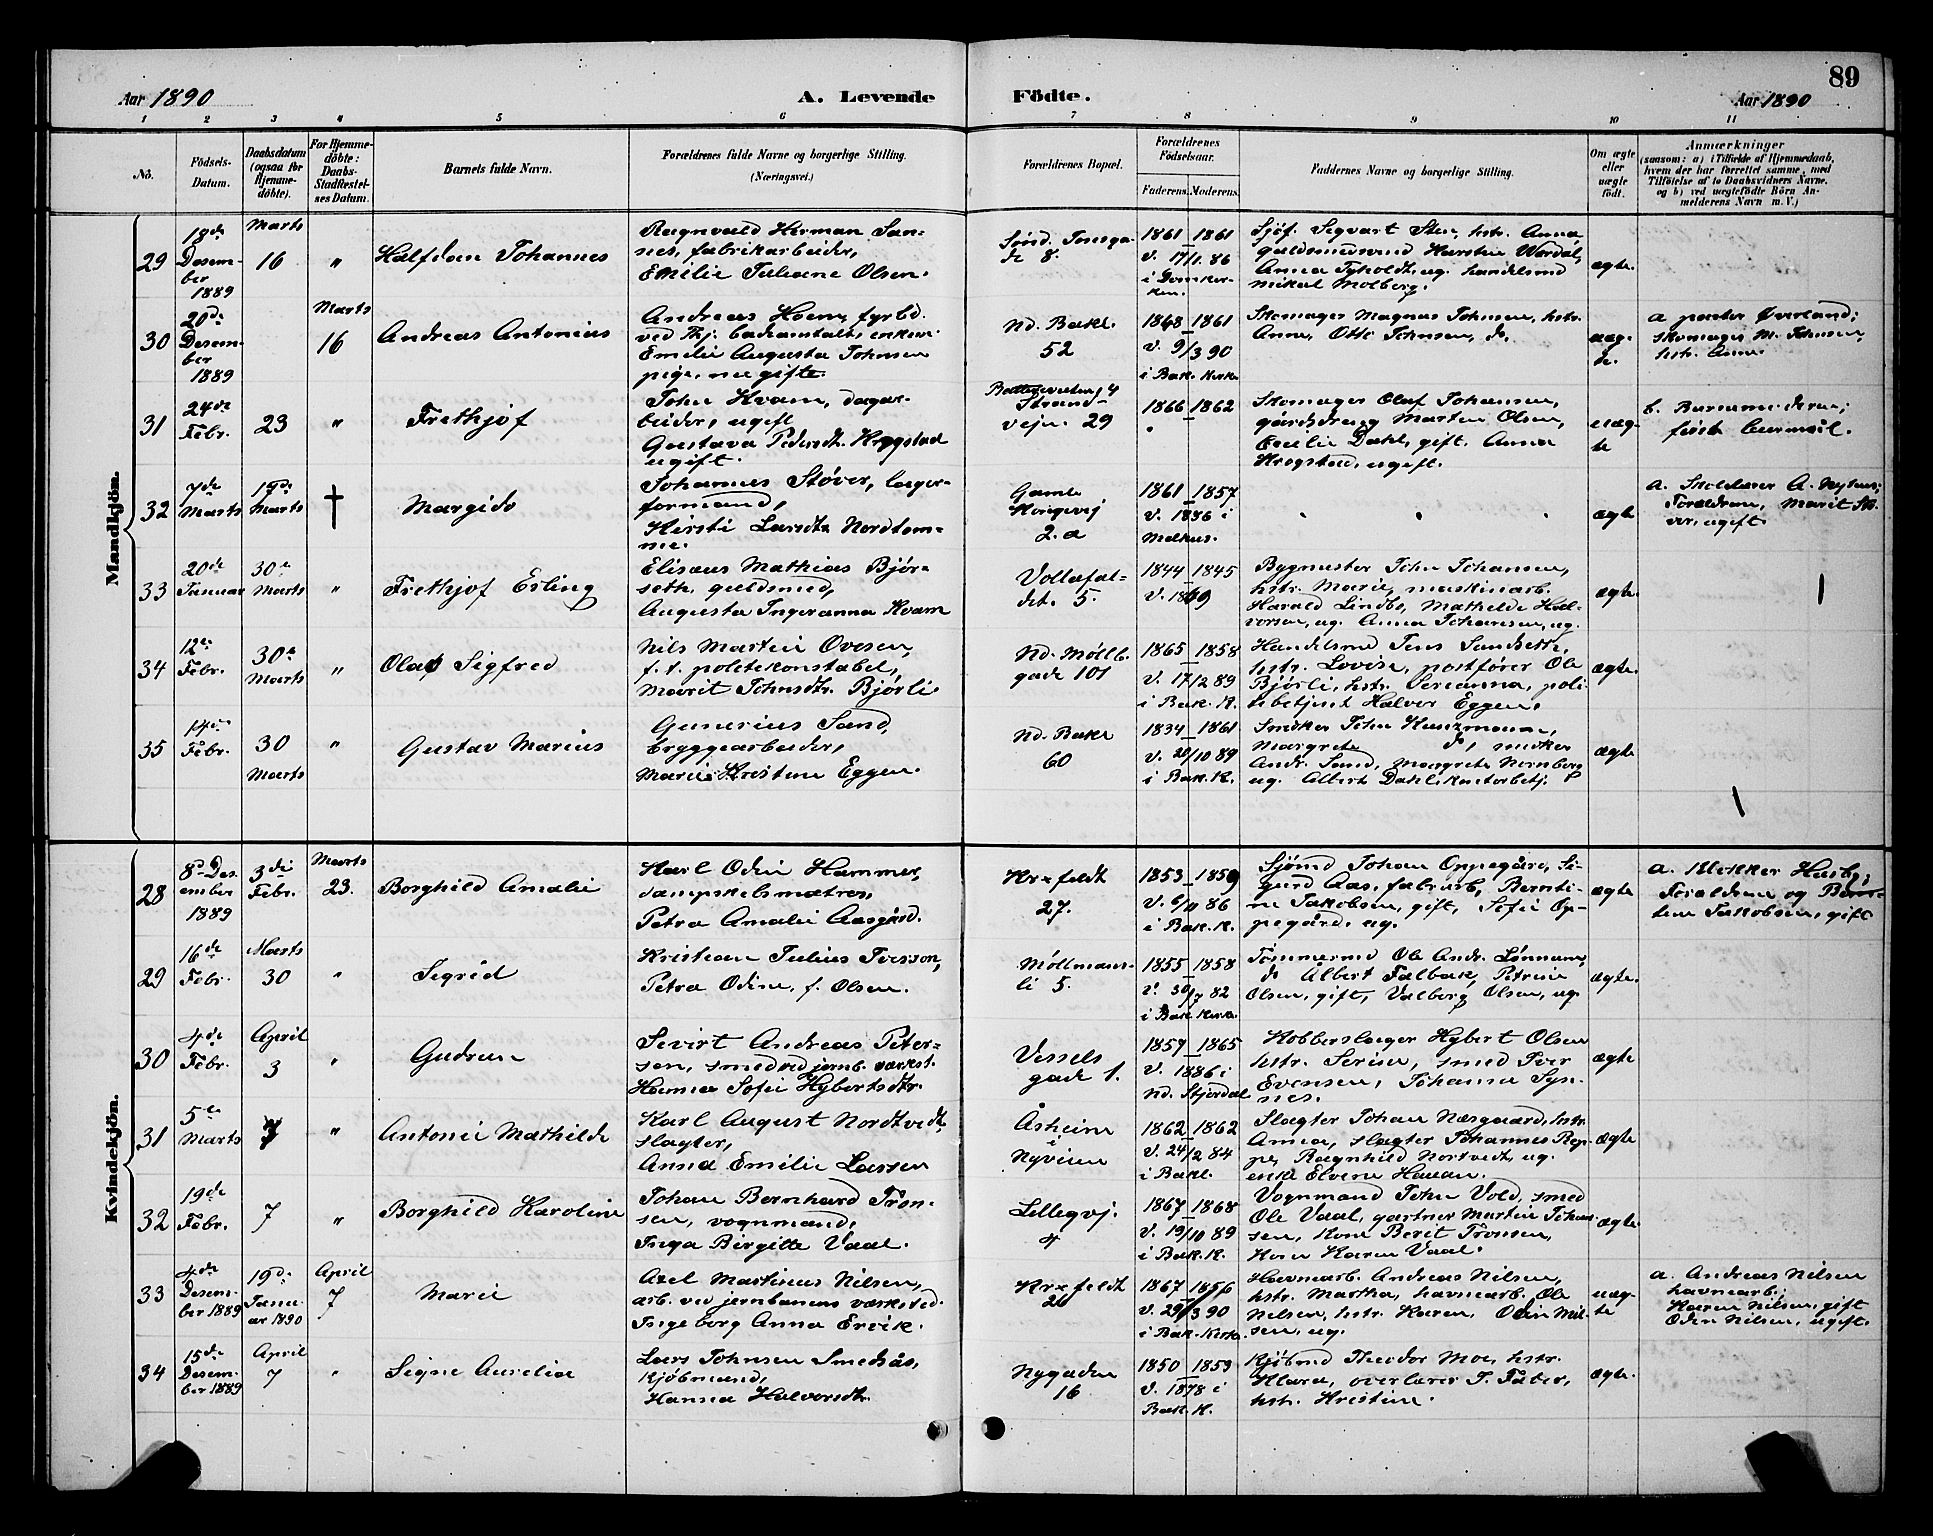 89
Aar 1890
A. Levende
Födte.
Aar 1890
1 2 3 4 5 6 7 8 9 10 11
No.
Födsels-
Datum.
Daabsdatum
(ogsaa for
Hjemme-
döbte).
For Hjemme-
döbte:
Daabs-
Stadfæstel-
ses Datum.
Barnets fulde Navn.
Forældrenes fulde Navne og borgerlige Stilling.
(Næringsvei.)
Forældrenes Bopæl.
Forældrenes
Födselsaar.
Faderens. Moderens.
Faddernes Navne og borgerlige Stilling.
Om ægte
eller
uægte
födt.
Anmærkninger
(saasom: a) i Tilfælde af Hjemmedaab,
hvem der har forrettet samme, med
Tilföielse af to Daabsvidners Navne,
og b) ved uægtefödte Börn An-
melderens Navn m. V.)
Mandkjön.
29
18de
Desem-
ber
1889
Marts
16
"
Halfdan Johannes
Ragnvald Herman San-
nes, fabrikarbeider,
Emilie Juliane Olsen.
Sönd. Tomtga-
de 8.
1861 – 1861
V. 17/1. 86
i Domkir-
ken.
Sjöf. Sigvart Sten, hstr. Anna
guldsmedsvend Karsten Wardal,
Anna Tyholdt, ug. handelsmd
Mikal Molberg.
ægte.
30
20de
Desem-
ber
1889
Marts
16
Andreas Antonius
Andreas Hoem, fyrbö.
ved Thj. badeanstalt, enkem.
Emilie Augusta Johnsen
pige, nu gifte.
Nd. Bakl.
52
1848 – 1861
V. 9/3 90
i Bak. Kirke
Skomager Magnus Johnsen, hstr.
Anna, Otto Johnsen, do.
uæg-
te.
a. pastor Överland;
skomager M. Johnsen,
hstr. Anna.
31
24de
Febr.
23
"
Frethjof
John Kvam, dagar-
beider, ugift
Gustava Pedersdt. Krogstad
ugift.
Strand-
vejn. 29
1866 – 1862
Skomager Olaf Johansen,
gårdsdreng Martin Olsen,
Emilie Dahl, gift. Anna
Krogstad, ugift.
uæg-
te
b. Barnemoderen;
förste leiermål.
32
7de
Marts
19de
Marts
†
Margido
Johannes Stöver, lager-
formand,
Kirsti Larsdtr Nordtöm-
me.
Gamle
Kongevej
2.a
1861 – 1857
V. 1886 i
Melhus.
ægte
a. Skolelærer A. Nyhus;
Foreldrene, Marit Stö-
ver, ugift.
33
20de
Januar
30te
Marts
"
Frethjof Erling
Elisæus Mathias Björ-
seth, guldsmed,
Augusta Ingeranna Kvam
Vollafal-
det. 5.
1844 – 1845
V. 1869
Bygmester John Johansen,
hstr. Marie, maskinarb.
Harald Lindbo, Mathilde Hal-
vorsen, ug. Anna Johansen, ug.
ægte.
34
12te
Febr.
30te
Marts
"
Olaf Sigfred
Nils Martin Ovesen,
f. t. politikonstabel,
Marit Johnsdtr. Björli
Nd. Möllb.
gade 101
1865 – 1858
V. 17/2 89
i Bak. K.
Handelsmd Jens Sandseth,
hstr. Lovise, postförer Ole
Björli, hstr. Serianna, poli-
tibetjent Halvor Eggen.
ægte.
35
14de
Febr.
30
Marts
"
Gustav Marius
Gunerius Sand,
bryggearbeider,
Marie Kristine Eggen.
Nd. Bakl
60
1834 – 1861
V. 20/10 89
i Bak. K.
Snedker John Kunzmann,
Margrete do, snedker
Andr. Sand, Margrete Nornberg
ug. Albert Dahl, kontorbetj.
ægte
Kvindekjön.
28
8de Des
ember
1889
3die
Febr.
Marts
23.
Borghild Amalie
Karl Odin Hammer,
dampskibsmatros,
Petra Amalie Aasgård.
Kr=feldt
27.
1853 – 1859
V. 6/10 86
i Bak. K.
Sjömd Johan Oppegård, Si-
gurd Aas, fabrarb, Bernti-
ne Jakobsen, gift, Sofie Op-
pegård, ug.
ægte
a. Klokker Husby;
Foreldrene og Bernt-
tine Jakobsen, gift
29
16de
Febr.
Marts
30
"
Sigrid
Kristian Julius Iversson,
Petra Odine, f. Olsen.
Möllmans-
li 5.
1855 – 1858
V. 30/7 82
i Bak. Kirke
Tömmermd Ole Andr. Lönnum,
do Albert Falbak, Petrine
Olsen, gift, Valborg Olsen, ug.
ægte.
30
4de
Febr.
April
3
"
Gudrun
Sivirt Andreas Peter-
sen, smed ved jernb. værkst.
Hanna Sofie Hybertsdtr.
Vessels
gade 1.
1857 – 1865
V. 1886 i
Nd. Stjördal
Kobberslager Hybert Olsen
hstr. Serine, smed Iver
Evensen, Johanna Syn-
nes.
ægte
31
5te
Marts
7
"
Antonie Mathilde
Karl August Nordtvedt,
slagter,
Anna Emilie Larsen
Åsheim
i
Nyveien
1862 – 1862
V. 24/2 84
i Bakl.
Slagter Johan Næsgaard, hstr.
Anna, slagter Johannes Rep-
pe, Ragnhild Nortvedt, ug.
enke Elvera Hauan.
ægte
32
19de
Febr.
7
"
Borghild Karoline
Johan Bernhard Trön-
sen, vognmand,
Inga Birgitte Vaal.
Lillegvj.
4
1867 – 1868
V. 19/10 89
i Bak. K.
Vognmand John Vold, smed
Ole Vaal, gartner Martin Johan-
sen, Kone Berit Trönsen,
Kone Karen Vaal.
ægte.
33
4de
Desem-
ber 1889
19de
Janu-
ar 1890
April
7
Marie
Axel Martinus Nilsen,
arb. ved jernbanens værksted.
Ingeborg Anna Ervik.
Kr=feldt
26
1867 – 1856
V. 29/3 90
i Bak. Kirke.
Havnearb. Andreas Nilsen,
hstr. Martha, havnearb. Ole
Nilsen, hstr. Karen, Odin Nil-
sen, ug.
uæg-
te
a. Andreas Nilsen
havnearb;
Karen Nilsen, gift
Odin Nilsen, ugift.
34
15de
Desem-
ber 1889
April
7
"
Signe Aurelia
Lars Johnsen Smedsås,
kjöbmand,
Hanna Halvorsdtr.
Nygaden
16
1850 – 1853
V. 1878 i
Bak. K.
Kjöbmd Theodor Moe, hstr.
Klara, overlærer J. Faber,
hstr. Kristine.
ægte.